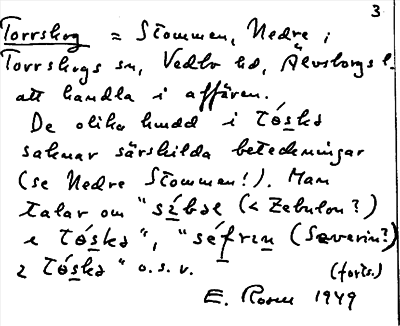 3
Torrskog = Stommen, Nedre i
Torrskogs sn, Vedbo hd, Älvsborgs l.
att handla i affären.
De olika kudd i Tóskə
saknar särskilda beteckningar
(se Nedre Stommen!). Man
talar om "síbəl (< Zebulon?)
i Tóskə", "séfrin (Severin?)
i Tóskə" o.s.v. (forts.)
E. Rosen 1949